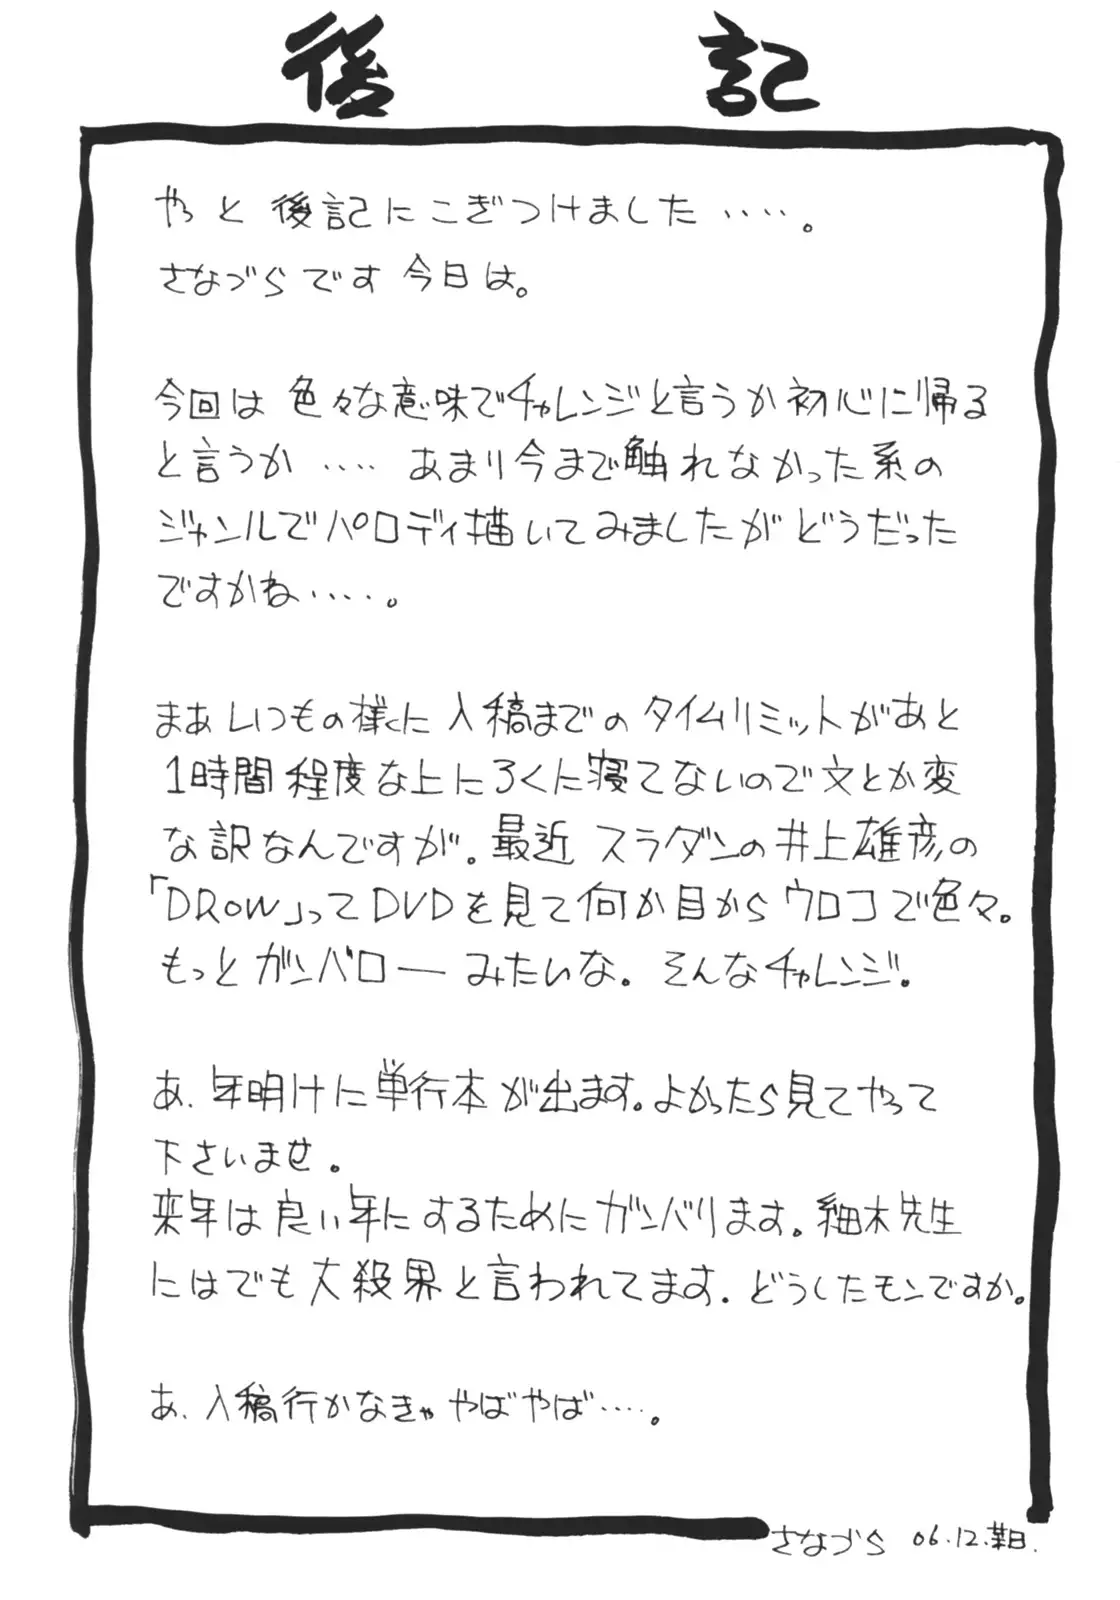 後記
やっと後記にこぎつけました・・・・。
さなづらです今日は。
今回は色々な意味でチャレンジと言うか初心に帰る
と言うか・・・・あまり今まで触れなかった系の
ジャンルでパロディ描いてみましたがどうだった
ですかね・・・・。
まあいつもの様に入稿までのタイムリミットがあと
1時間程度な上にろくに寝てないので文とか変
な訳なんですが。最近スラダンの井上雄彦の
「DROW」ってDVDを見て何か目からウロコで色々。
もっとガンバローみたいな。そんなチャレンジ。
あ、年明けに単行本が出ます。よかったら見てやって
下さいませ。
来年は良い年にするためにガンバります。細木先生
にはでも大殺界と言われてます。どうしたモンですか。
あ、入稿行かなきゃやばやば・・・・。
さなづら 06.12.